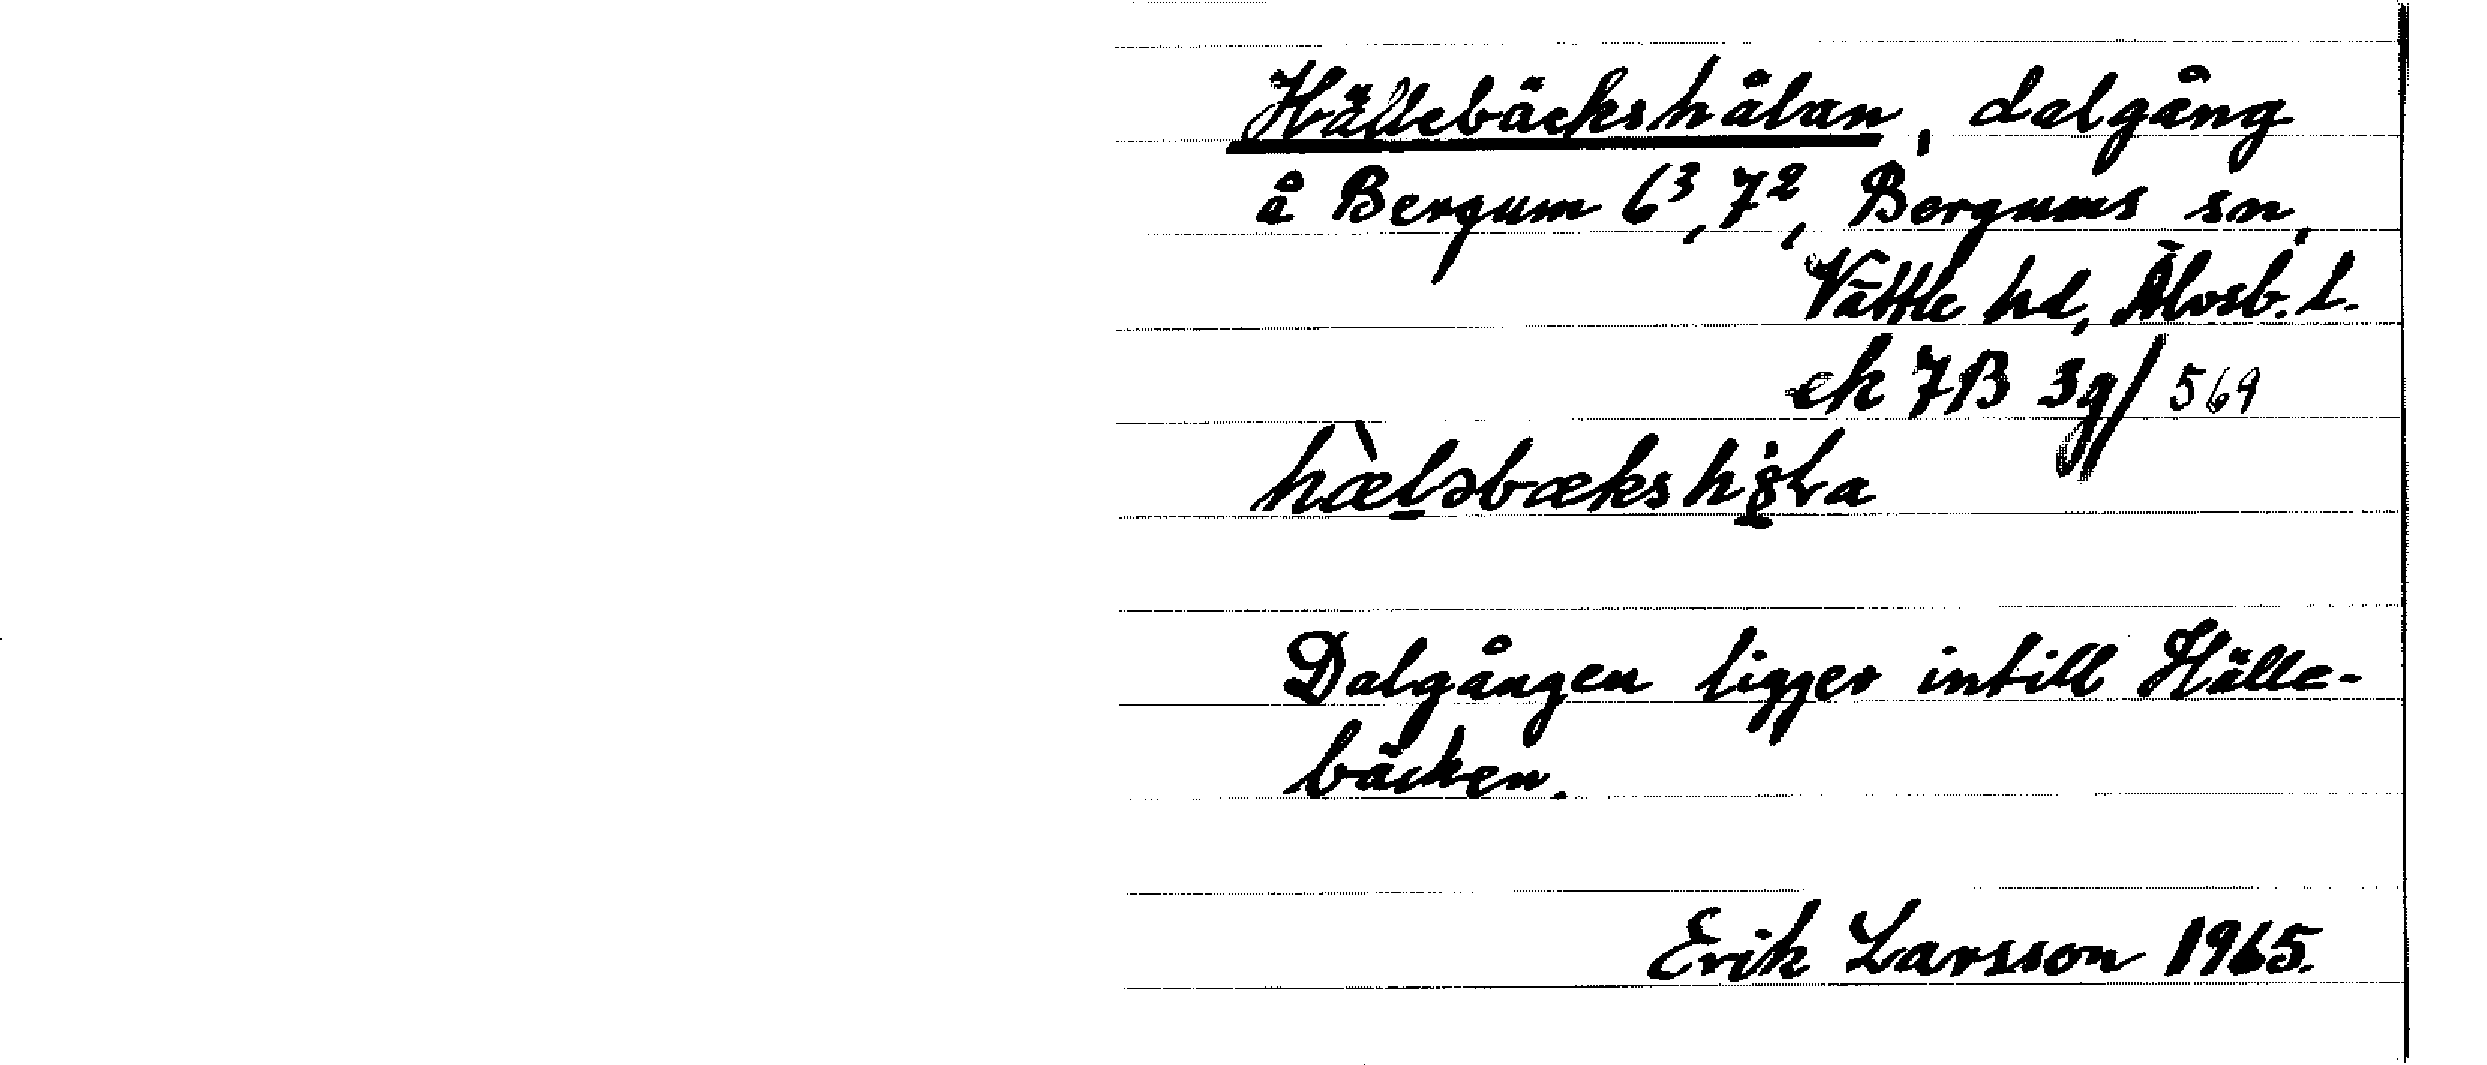 Hällebäckshålan, dalgång
å Bergum 6³, 7², Bergums sn,
Vättle hd, Älvsb. l.
ek 7B 3g/569
Dalgången ligger intill Hälle-
bäcken.
Erik Larsson 1965.